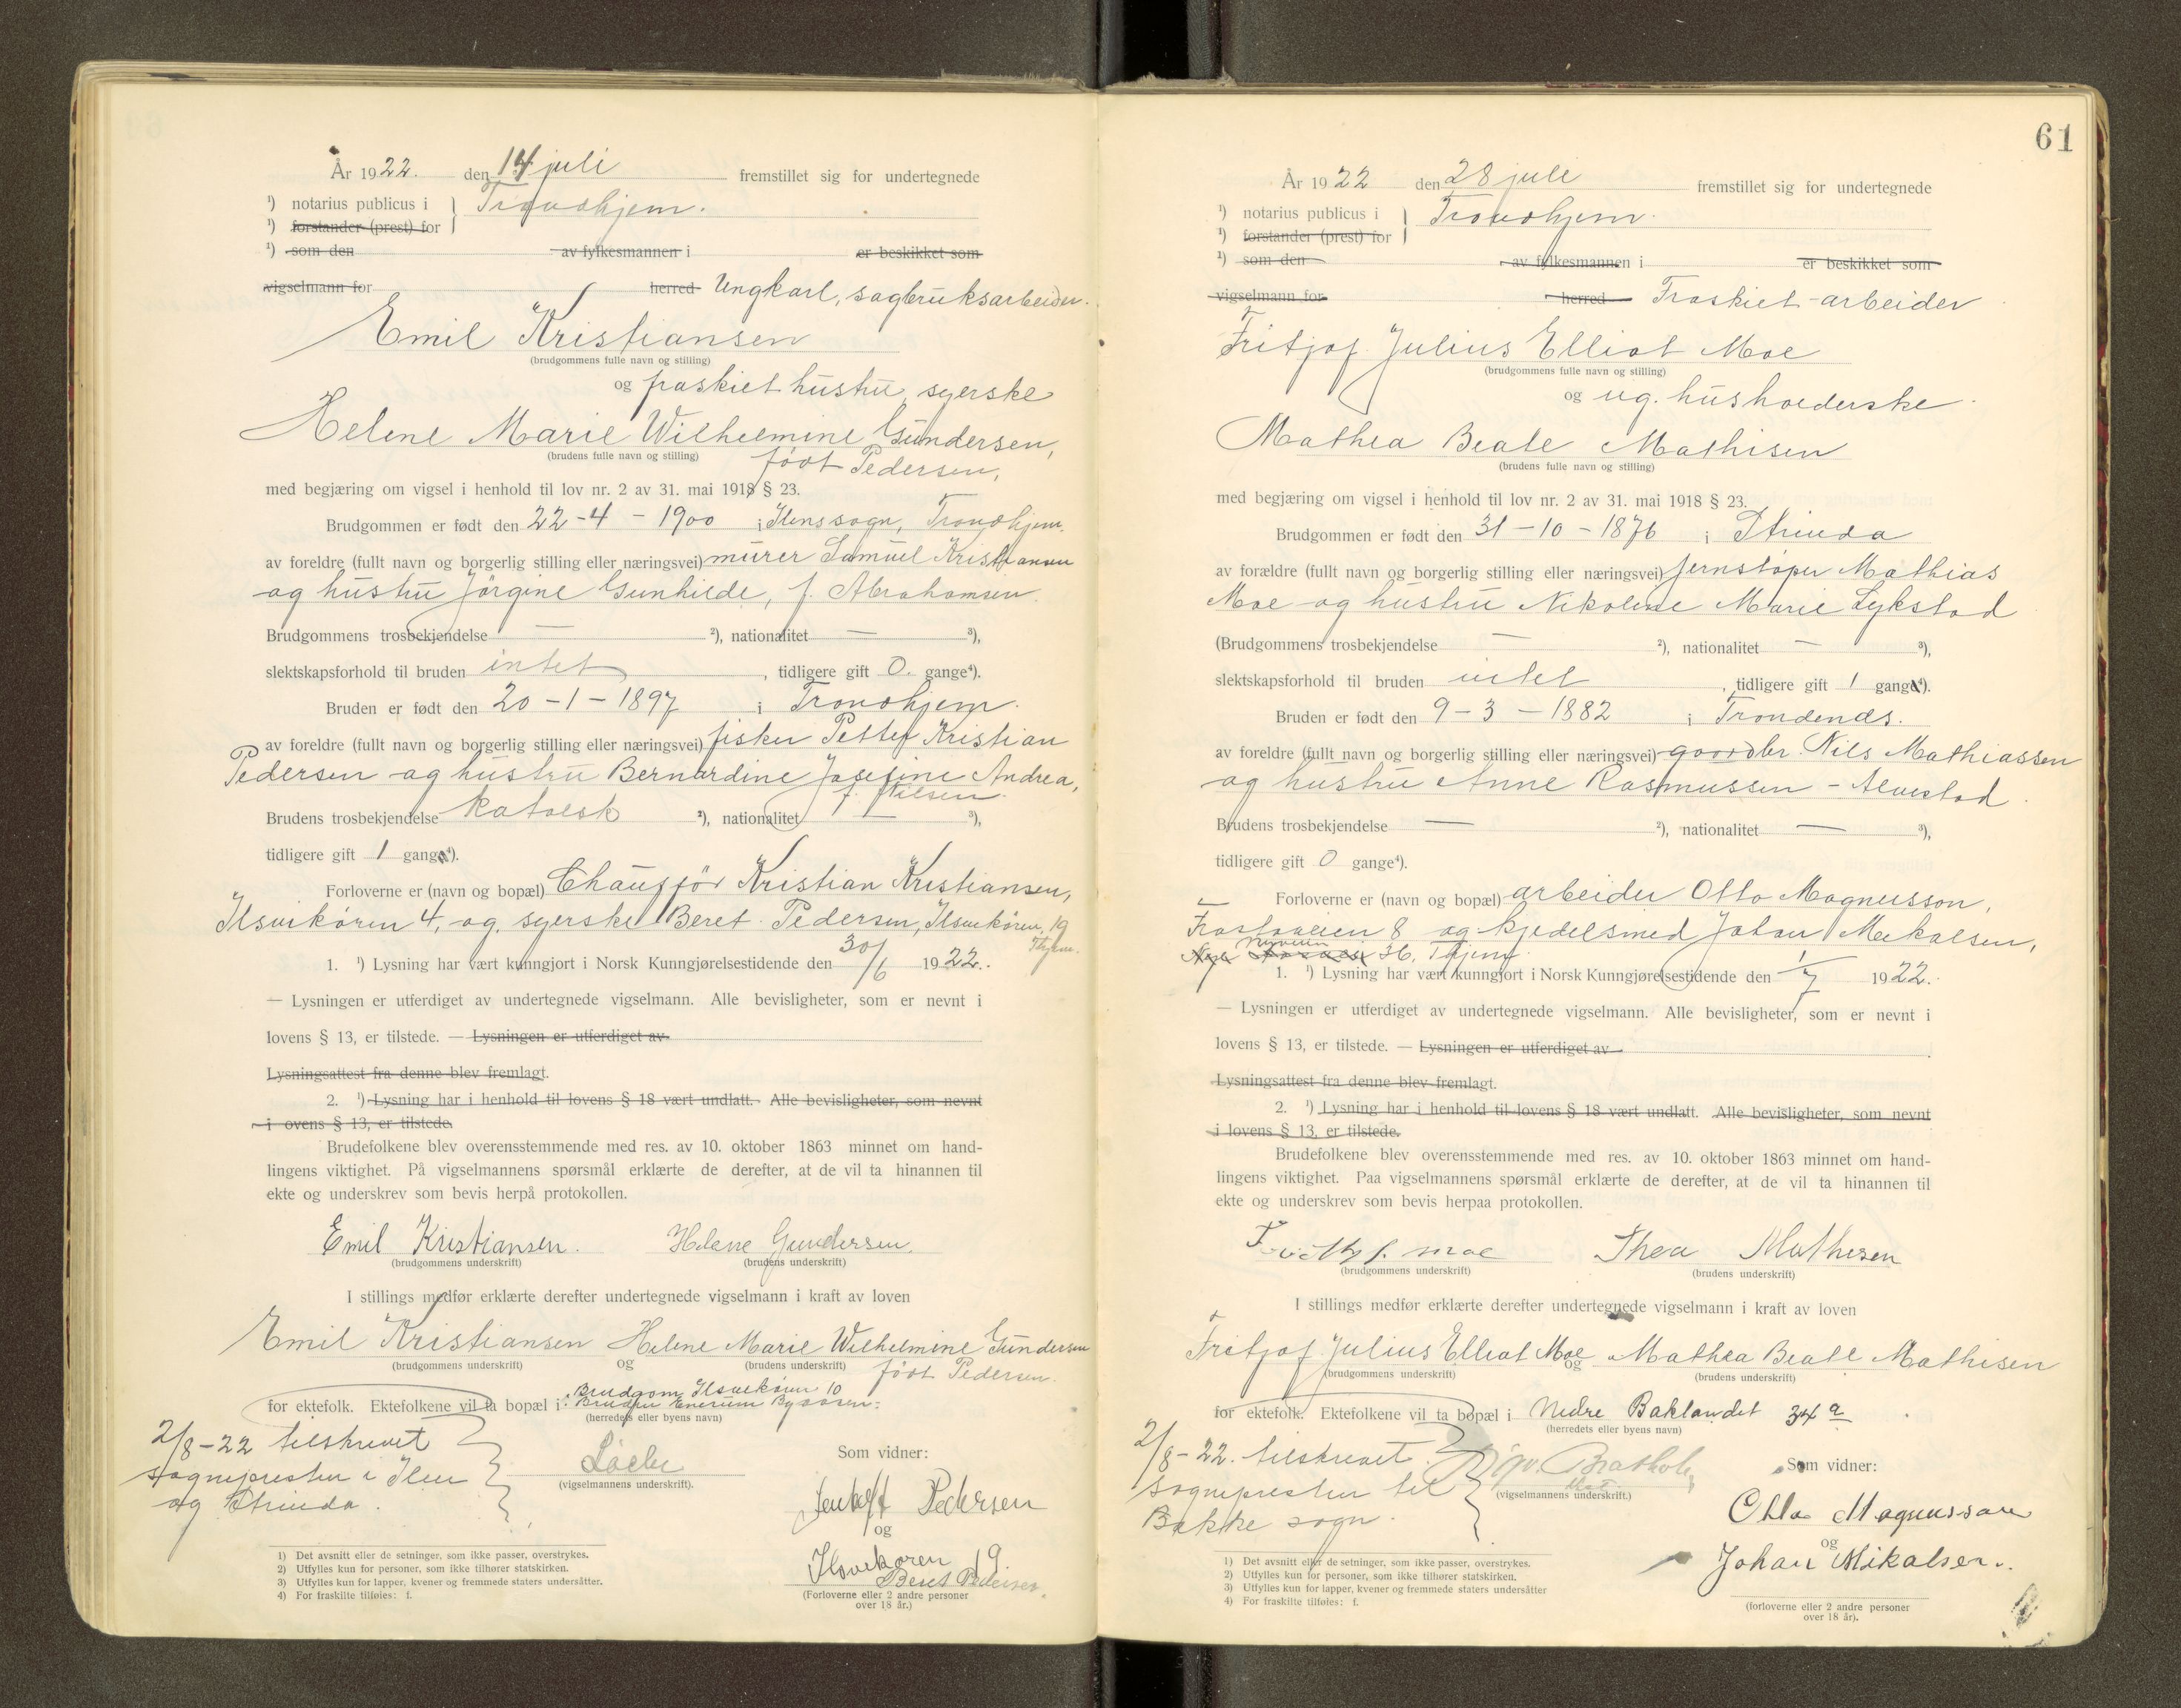 År 1922. den 14 juli fremstillet sig for undertegnede
¹) notarius publicus i } Trondhjem.
¹) forstander (prest) for
¹) som den av fylkesmannen i er beskikket som
vigselmann for herred Ungkarl, sagbruksarbeider.
Emil Kristiansen
(brudgommens fulle navn og stilling)
og fraskilt hustru, syerske
Helene Marie Wilhelmine Gundersen,
(brudens fulle navn og stilling) født Pedersen,
med begjæring om vigsel i henhold til lov nr. 2 av 31. mai 1918 § 23.
Brudgommen er født den 22-4-1900 i Ilens sogn, Trondhjem.
av foreldre (fullt navn og borgerlig stilling eller næringsvei) murer Samuel Kristiansen
og hustru Jørgine Gunhilde, f. Abrahamsen.
Brudgommens trosbekjendelse — ²), nationalitet — ³),
slektskapsforhold til bruden intet, tidligere gift 0. gange⁴).
Bruden er født den 20-1-1897 i Trondhjem.
av foreldre (fullt navn og borgerlig stilling eller næringsvei) fisker Petter Kristian
Pedersen og hustru Bernardine Josefine Andrea,
f. Nilsen.
Brudens trosbekjendelse katolsk ²), nationalitet — ³),
tidligere gift 1 gange⁴).
Forloverne er (navn og bopæl) Chauffør Kristian Kristiansen,
Ilsvikøren 4, og syerske Beret Pedersen, Ilsvikøren, 19
Thjem.
1. ¹) Lysning har vært kunngjort i Norsk Kunngjørelsestidende den 30/6 1922.
— Lysningen er utferdiget av undertegnede vigselmann. Alle bevisligheter, som er nevnt i
lovens § 13, er tilstede. — Lysningen er utferdiget av
Lysningsattest fra denne blev fremlagt.
2. ¹) Lysning har i henhold til lovens § 18 vært undlatt. Alle bevisligheter, som nevnt
i ovens § 13, er tilstede.
Brudefolkene blev overensstemmende med res. av 10. oktober 1863 minnet om hand-
lingens viktighet. På vigselmannens spørsmål erklærte de derefter, at de vil ta hinannen til
ekte og underskrev som bevis herpå protokollen.
Emil Kristiansen. Helene Gundersen.
(brudgommens underskrift) (brudens underskrift)
I stillings medfør erklærte derefter undertegnede vigselmann i kraft av loven
Emil Kristiansen og Helene Marie Wilhelmine Gundersen
(brudgommens underskrift) (brudens underskrift) født Pedersen.
Brudgom Ilsvikøren 10
for ektefolk. Ektefolkene vil ta bopæl i: Bruden Byåsen:
(herredets eller byens navn)
2/8-22 tilskrevet
sogneprestn i Ilen
og Strinda.
(vigselmannens underskrift).
Som vidner:
Pedersen
og
Ilsvikøren 19
Beret Pedersen.
(Forloverne eller 2 andre personer
over 18 år.)
1) Det avsnitt eller de setninger, som ikke passer, overstrykes.
2) Utfylles kun for personer, som ikke tilhører statskirken.
3) Utfylles kun for lapper, kvener og fremmede staters undersåtter.
4) For fraskilte tilføies: f.
61
År 1922 den 28 juli fremstillet sig for undertegnede
¹) notarius publicus i } Trondhjem.
¹) forstander (prest) for
¹) som den av fylkesmannen i er beskikket som
vigselmann for herred Fraskilt arbeider
Fritjof Julius Elliot Moe
(brudgommens fulle navn og stilling)
og ug. husholderske.
Mathea Beate Mathisen
(brudens fulle navn og stilling)
med begjæring om vigsel i henhold til lov nr. 2 av 31. mai 1918 § 23.
Brudgommen er født den 31-10-1876 i Strinda
av forældre (fullt navn og borgerlig stilling eller næringsvei) jernstøper Mathias
Moe og hustru Nikoline Marie Lykstad
(Brudgommens trosbekjendelse — ²), nationalitet — ³),
slektskapsforhold til bruden intet, tidligere gift 1 gange⁴).
Bruden er født den 9-3-1882 i Trondenes.
av foreldre (fullt navn og borgerlig stilling eller næringsvei) gaardbr. Nils Mathiassen
og hustru Anne Rasmussen - Alvestad.
Brudens trosbekjendelse — ²), nationalitet — ³),
tidligere gift 0 gange⁴).
Forloverne er (navn og bopæl) arbeider Otto Magnusson,
Frostaveien 8 og kjedelsmed Johan Mikalsen,
Nyveien 36, Thjem.
1. ¹) Lysning har vært kunngjort i Norsk Kunngjørelsestidende den 1/7 1922.
— Lysningen er utferdiget av undertegnede vigselmann. Alle bevisligheter, som er nevnt i
lovens § 13, er tilstede. — Lysningen er utferdiget av
Lysningsattest fra denne blev fremlagt.
2. ¹) Lysning har i henhold til lovens § 18 vært undlatt. Alle bevisligheter, som nevnt
i lovens § 13, er tilstede.
Brudefolkene blev overensstemmende med res. av 10. oktober 1863 minnet om hand-
lingens viktighet. Paa vigselmannens spørsmål erklærte de derefter, at de vil ta hinannen til
ekte og underskrev som bevis herpaa protokollen.
Moe Thea Mathisen
(brudgommens underskrift) (brudens underskrift)
I stillings medfør erklærte derefter undertegnede vigselmann i kraft av loven
Fritjof Julius Elliot Moe og Mathea Beate Mathisen
(brudgommens underskrift) (brudens underskrift)
for ektefolk. Ektefolkene vil ta bopæl i Nedre Baklandet 34 a
(herredets eller byens navn)
2/8-22. tilskrevet
sogneprestn til
Bakke sogn.
(vigselmannens underskrift.)
Som vidner:
Otto Magnusson
og
Johan Mikalsen.
(forloverne eller 2 andre personer
over 18 år).
1) Det avsnitt eller de setninger, som ikke passer, overstrykes.
2) Utfylles kun for personer, som ikke tilhører statskirken.
3) Utfylles kun for lapper, kvener og fremmede staters undersåtter
4) For fraskilte tilføies: f.